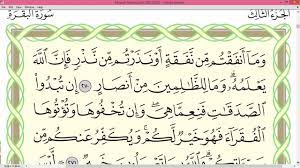 الجزء الثالث
سورة البقرة
وَمَآ أَنفَقْتُم مِّن نَّفَقَةٍ أَوْ نَذَرْتُم مِّن نَّذْرٍ فَإِنَّ ٱللَّهَ
يَعْلَمُهُۥ ۗ وَمَا لِلظَّٰلِمِينَ مِنْ أَنصَارٍ ٢٧٠ إِن تُبْدُوا۟
ٱلصَّدَقَٰتِ فَنِعِمَّا هِىَ ۖ وَإِن تُخْفُوهَا وَتُؤْتُوهَا
ٱلْفُقَرَآءَ فَهُوَ خَيْرٌ لَّكُمْ ۚ وَيُكَفِّرُ عَنكُم مِّن